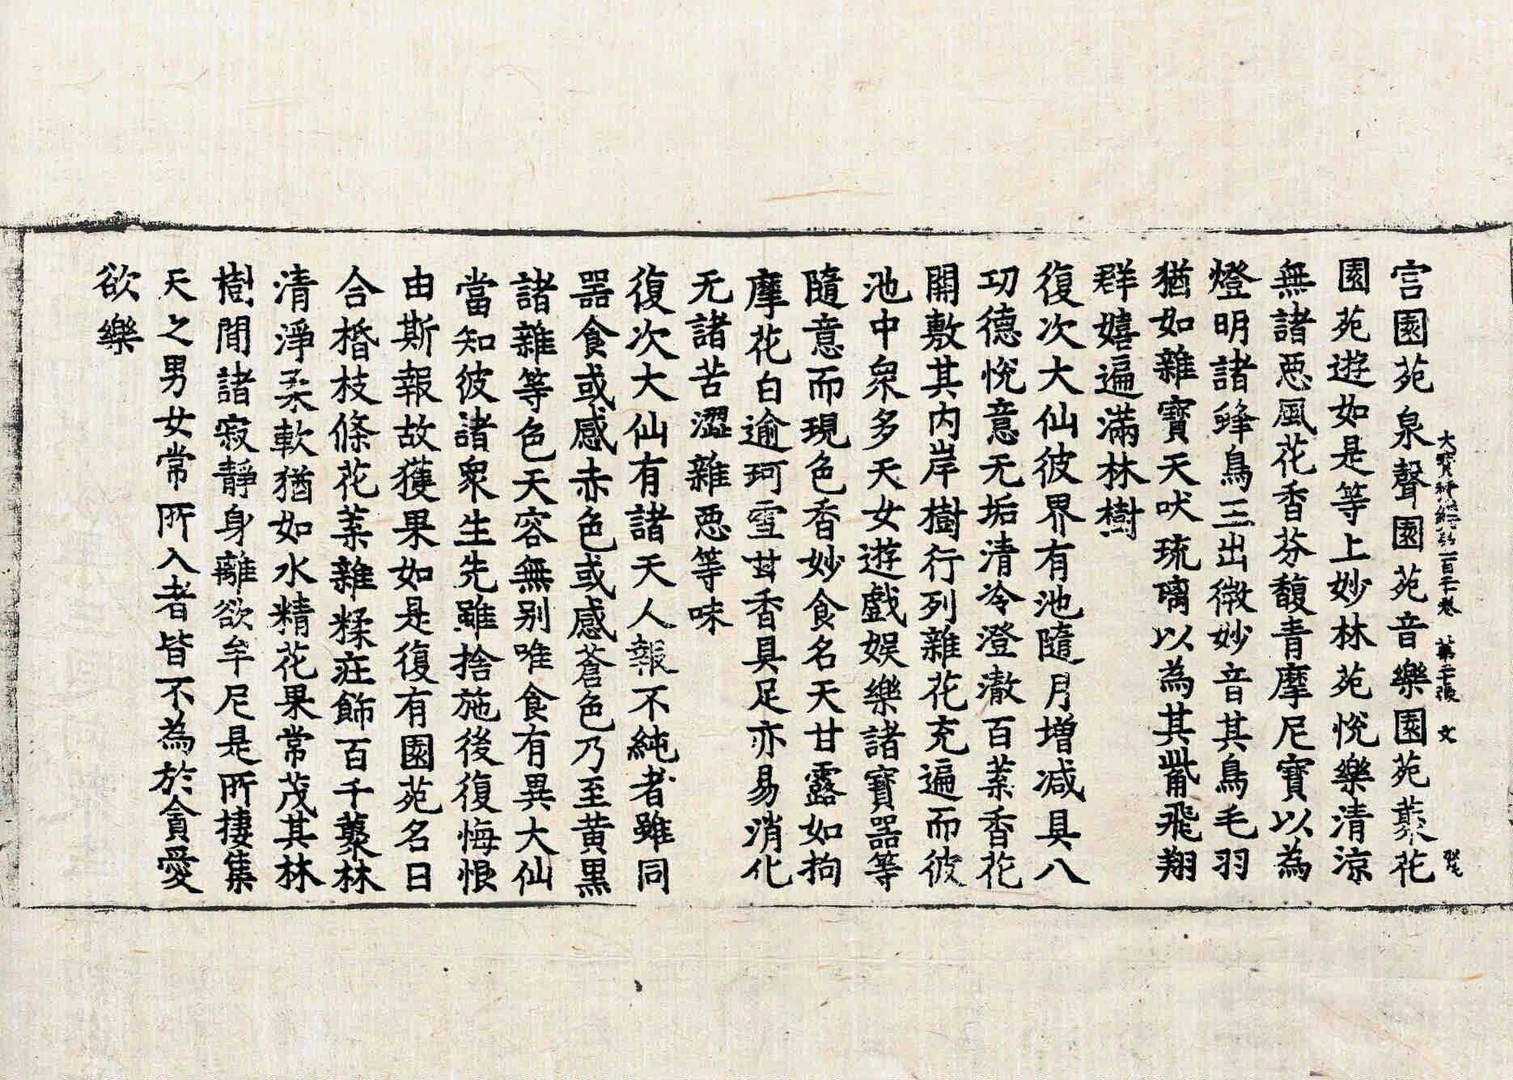 大寶積經第一百二十卷 第二十張 文
宫園苑泉聲園苑音樂園苑蘂花
園苑遊如是等上妙林苑悅樂清涼
無諸惡風花香芬馥青摩尼寶以為
燈明諸蜂鳥三出微妙音其鳥毛羽
猶如雜寶天吠琉璃以為其觜飛翔
群嬉遍滿林樹
復次大仙彼界有池隨月增減具八
功德悅意无垢清冷澄澈百葉香花
開敷其內岸樹行列雜花充遍而彼
池中衆多天女遊戲娱樂諸寶器等
隨意而現色香妙食名天甘露如拘
摩花白逾珂雪甘香具足亦易消化
无諸苦澀雜惡等味
復次大仙有諸天人報不純者雖同
器食或感赤色或感蒼色乃至黄黒
諸雜等色天容無别唯食有異大仙
當知彼諸衆生先雖捨施後復悔恨
由斯報故獲果如是復有園苑名曰
合㮔枝條花葉雜糅莊飾百千蘂林
清淨柔軟猶如水精花果常茂其林
樹間諸寂靜身離欲牟尼是所捿集
天之男女常所入者皆不為於貪愛
欲樂